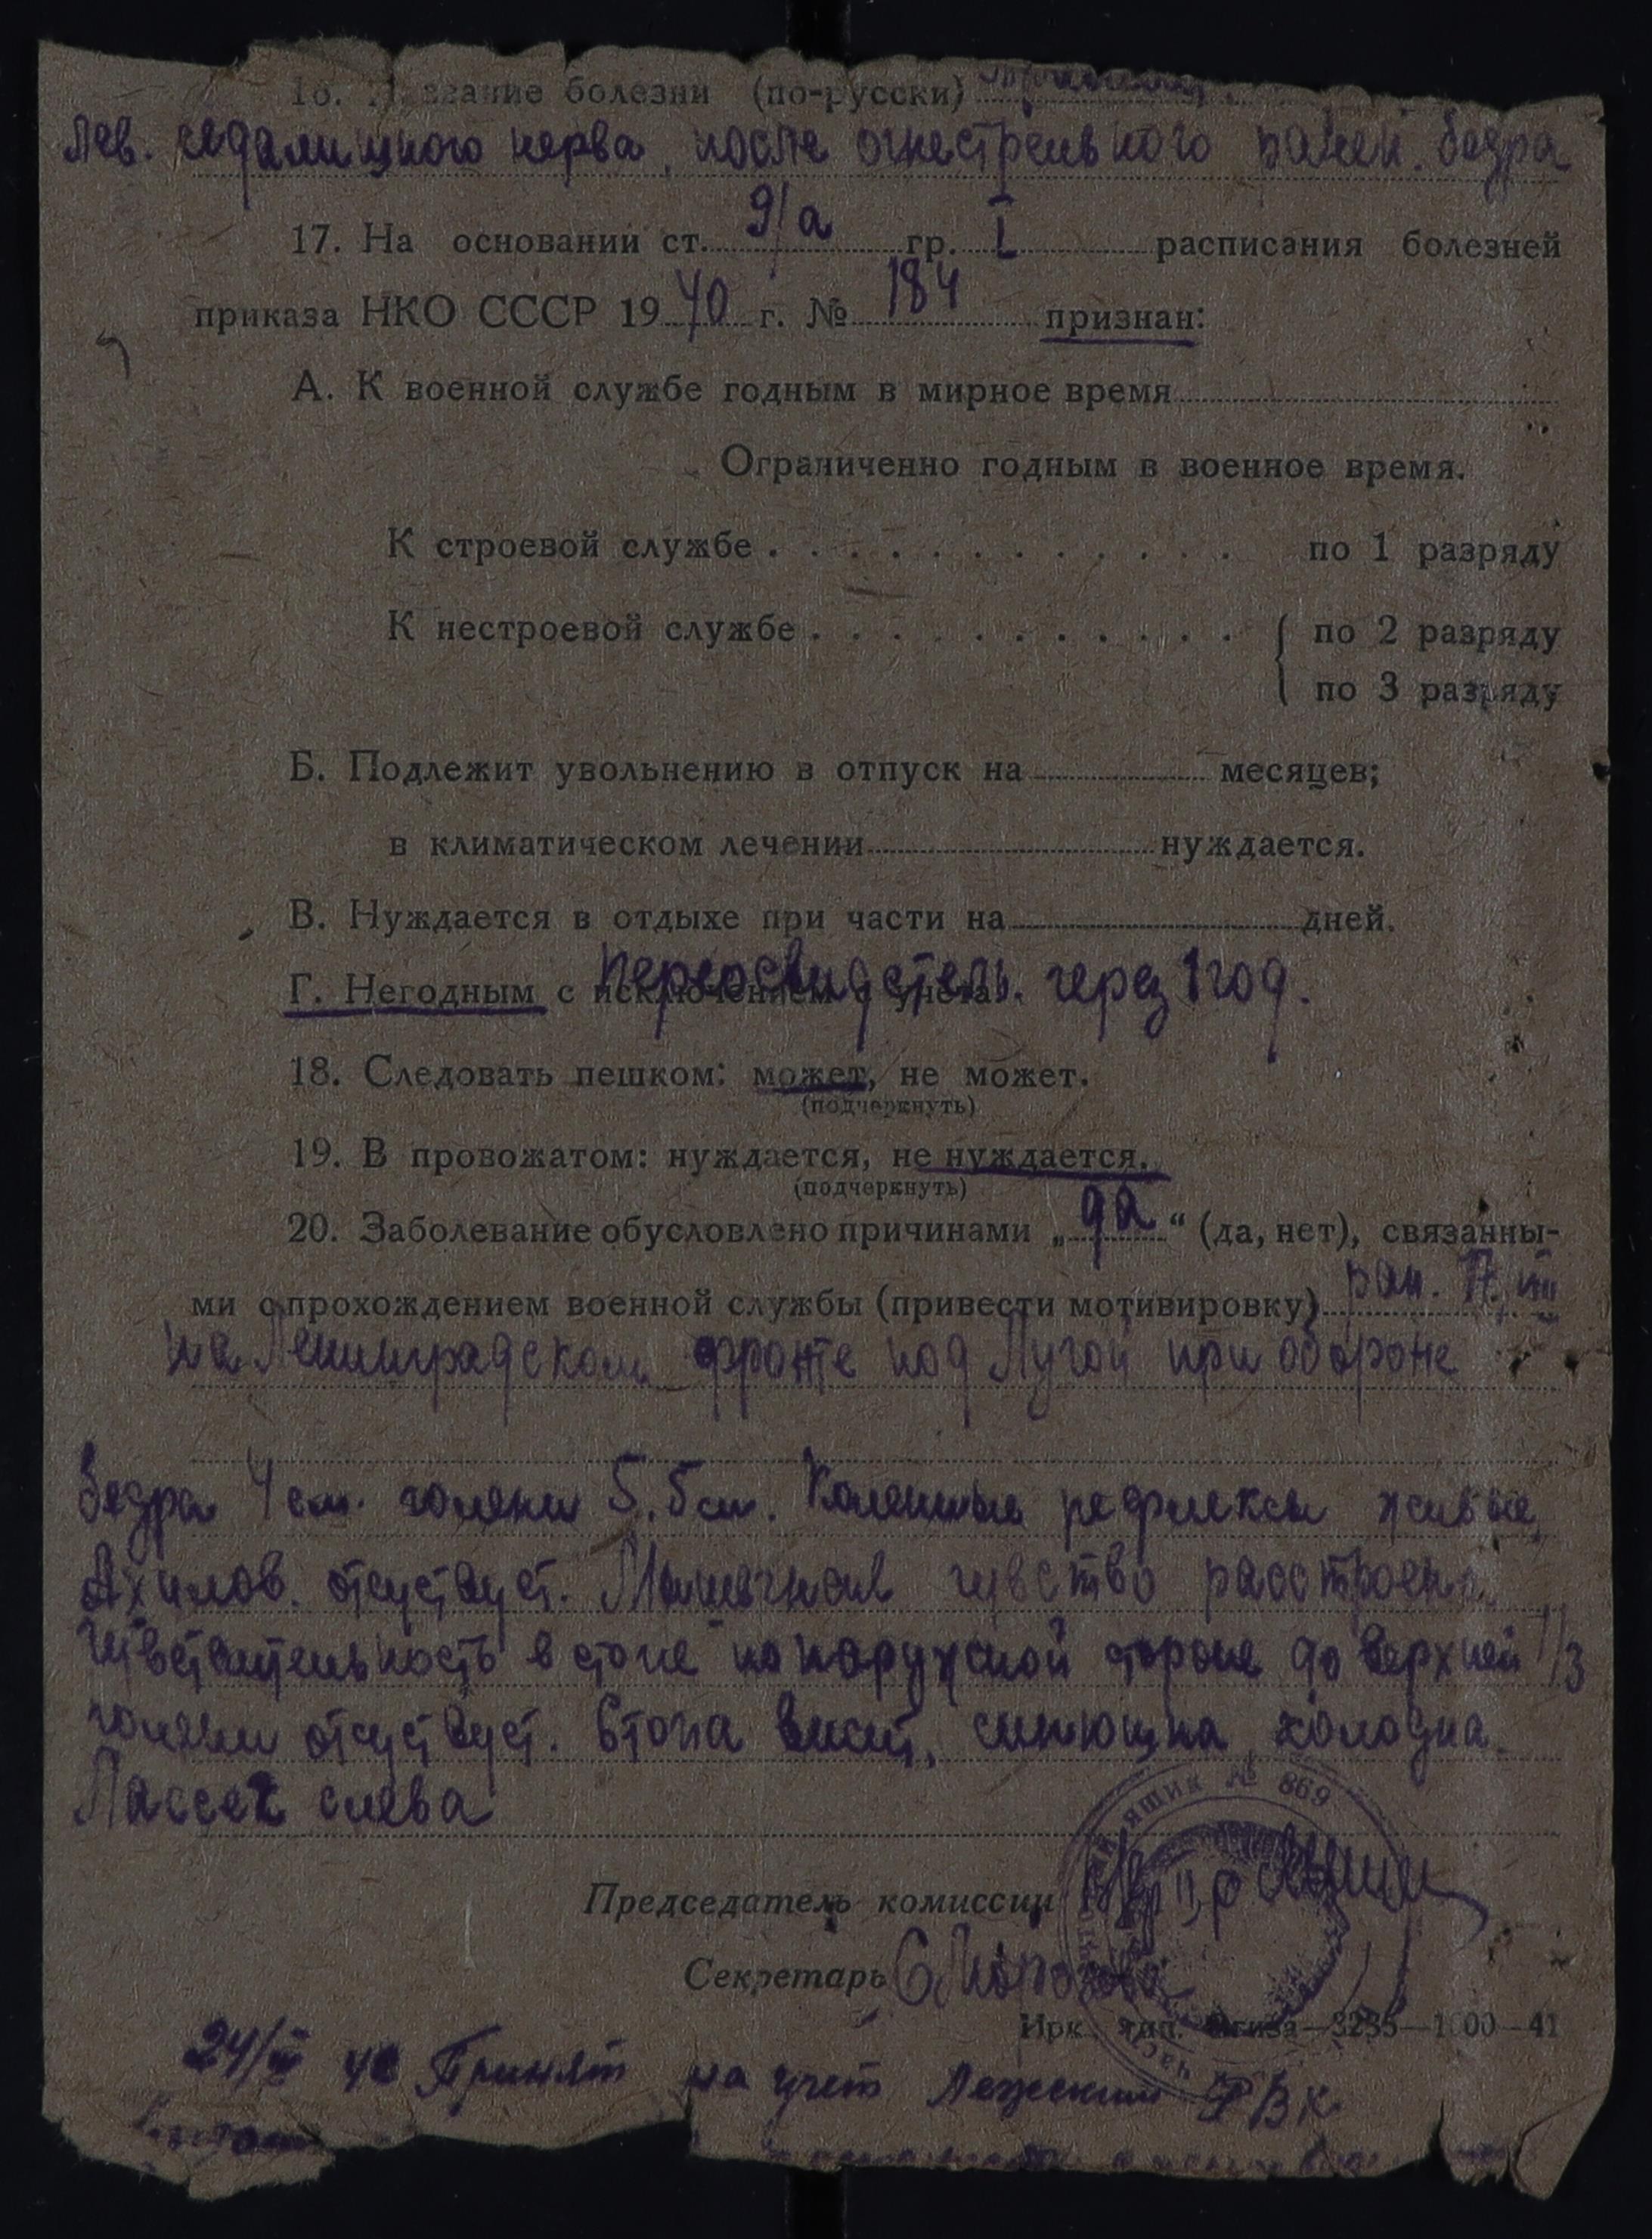 16. Название болезни (по-русски)
Лев. седалищного нерва, после огнестрельного ранен. бедра
17. На основании ст. 9/а гр. I расписания болезней
приказа НКО СССР 1940 г. № 184 признан:
А. К военной службе годным в мирное время
Ограниченно годным в военное время.
К строевой службе . . . . . . . . . . . . по 1 разряду
К нестроевой службе . . . . . . . . . . . { по 2 разряду
по 3 разряду
Б. Подлежит увольнению в отпуск на месяцев;
в климатическом лечении нуждается.
В. Нуждается в отдыхе при части на дней.
переосвидетель. через 1 год.
Г. Негодным с исключением с учета.
18. Следовать пешком: может, не может.
(подчеркнуть)
19. В провожатом: нуждается, не нуждается.
(подчеркнуть)
20. Заболевание обусловлено причинами „да“ (да, нет), связанны-
ми с прохождением военной службы (привести мотивировку) ран.
на Ленинградском фронте под Лугой при обороне
бедра 4 см. голени 5.5 см. Коленные рефлексы живые
Ахилов. отсуствует. Мышечное чувство расстроен
Чувствительность в стопе по наружной стороне до верхней 1/3
голени отсуствует. Стопа висит, синюшна холодна.
Лассег слева
ящик № 869
Председатель комиссии
Секретарь
Ирк. тип. Огиза—3235—1000—41
24/ Принят на учет РВК